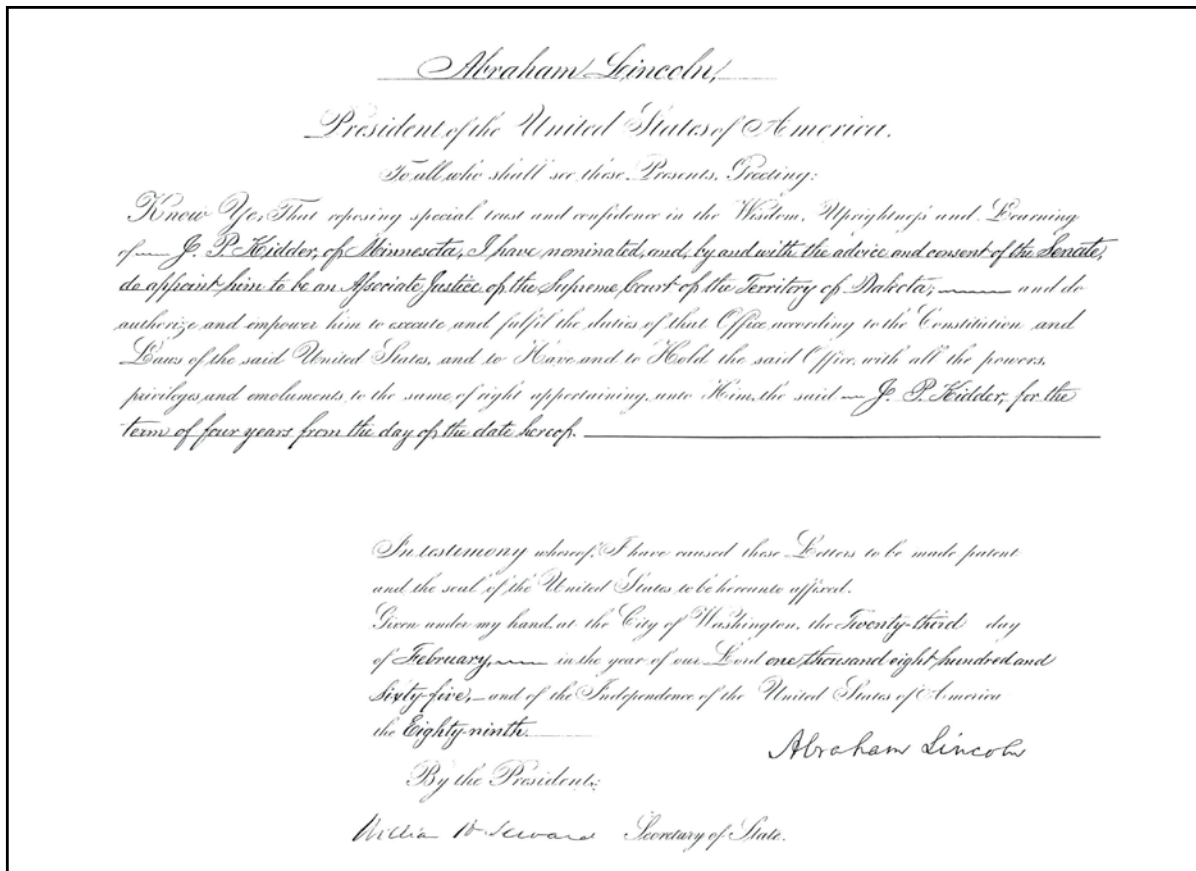 Abraham Lincoln,
President of the United States of America.
To all who shall see these Presents, Greeting:
Know Ye, That reposing special trust and confidence in the Wisdom, Uprightness and Learning
of J. P. Kidder, of Minnesota, I have nominated, and, by and with the advice and consent of the Senate,
do appoint him to be an Associate Justice of the Supreme Court of the Territory of Dakota; and do
authorize and empower him to execute and fulfil the duties of that Office according to the Constitution and
Laws of the said United States, and to Have and to Hold the said Office, with all the powers,
privileges and emoluments to the same of right appertaining unto Him, the said J. P. Kidder, for the
term of four years from the day of the date hereof.
In testimony whereof, I have caused these Letters to be made patent
and the seal of the United States to be hereunto affixed.
Given under my hand, at the City of Washington, the Twenty-third day
of February, in the year of our Lord one thousand eight hundred and
Sixty-five, and of the Independence of the United States of America
the Eighty-ninth.
Abraham Lincoln
By the President:
William H Seward Secretary of State.